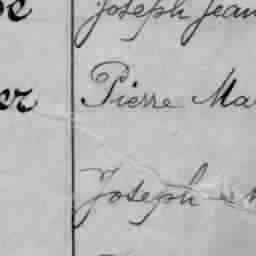 Joseph Jean
Pierre Ma
Joseph